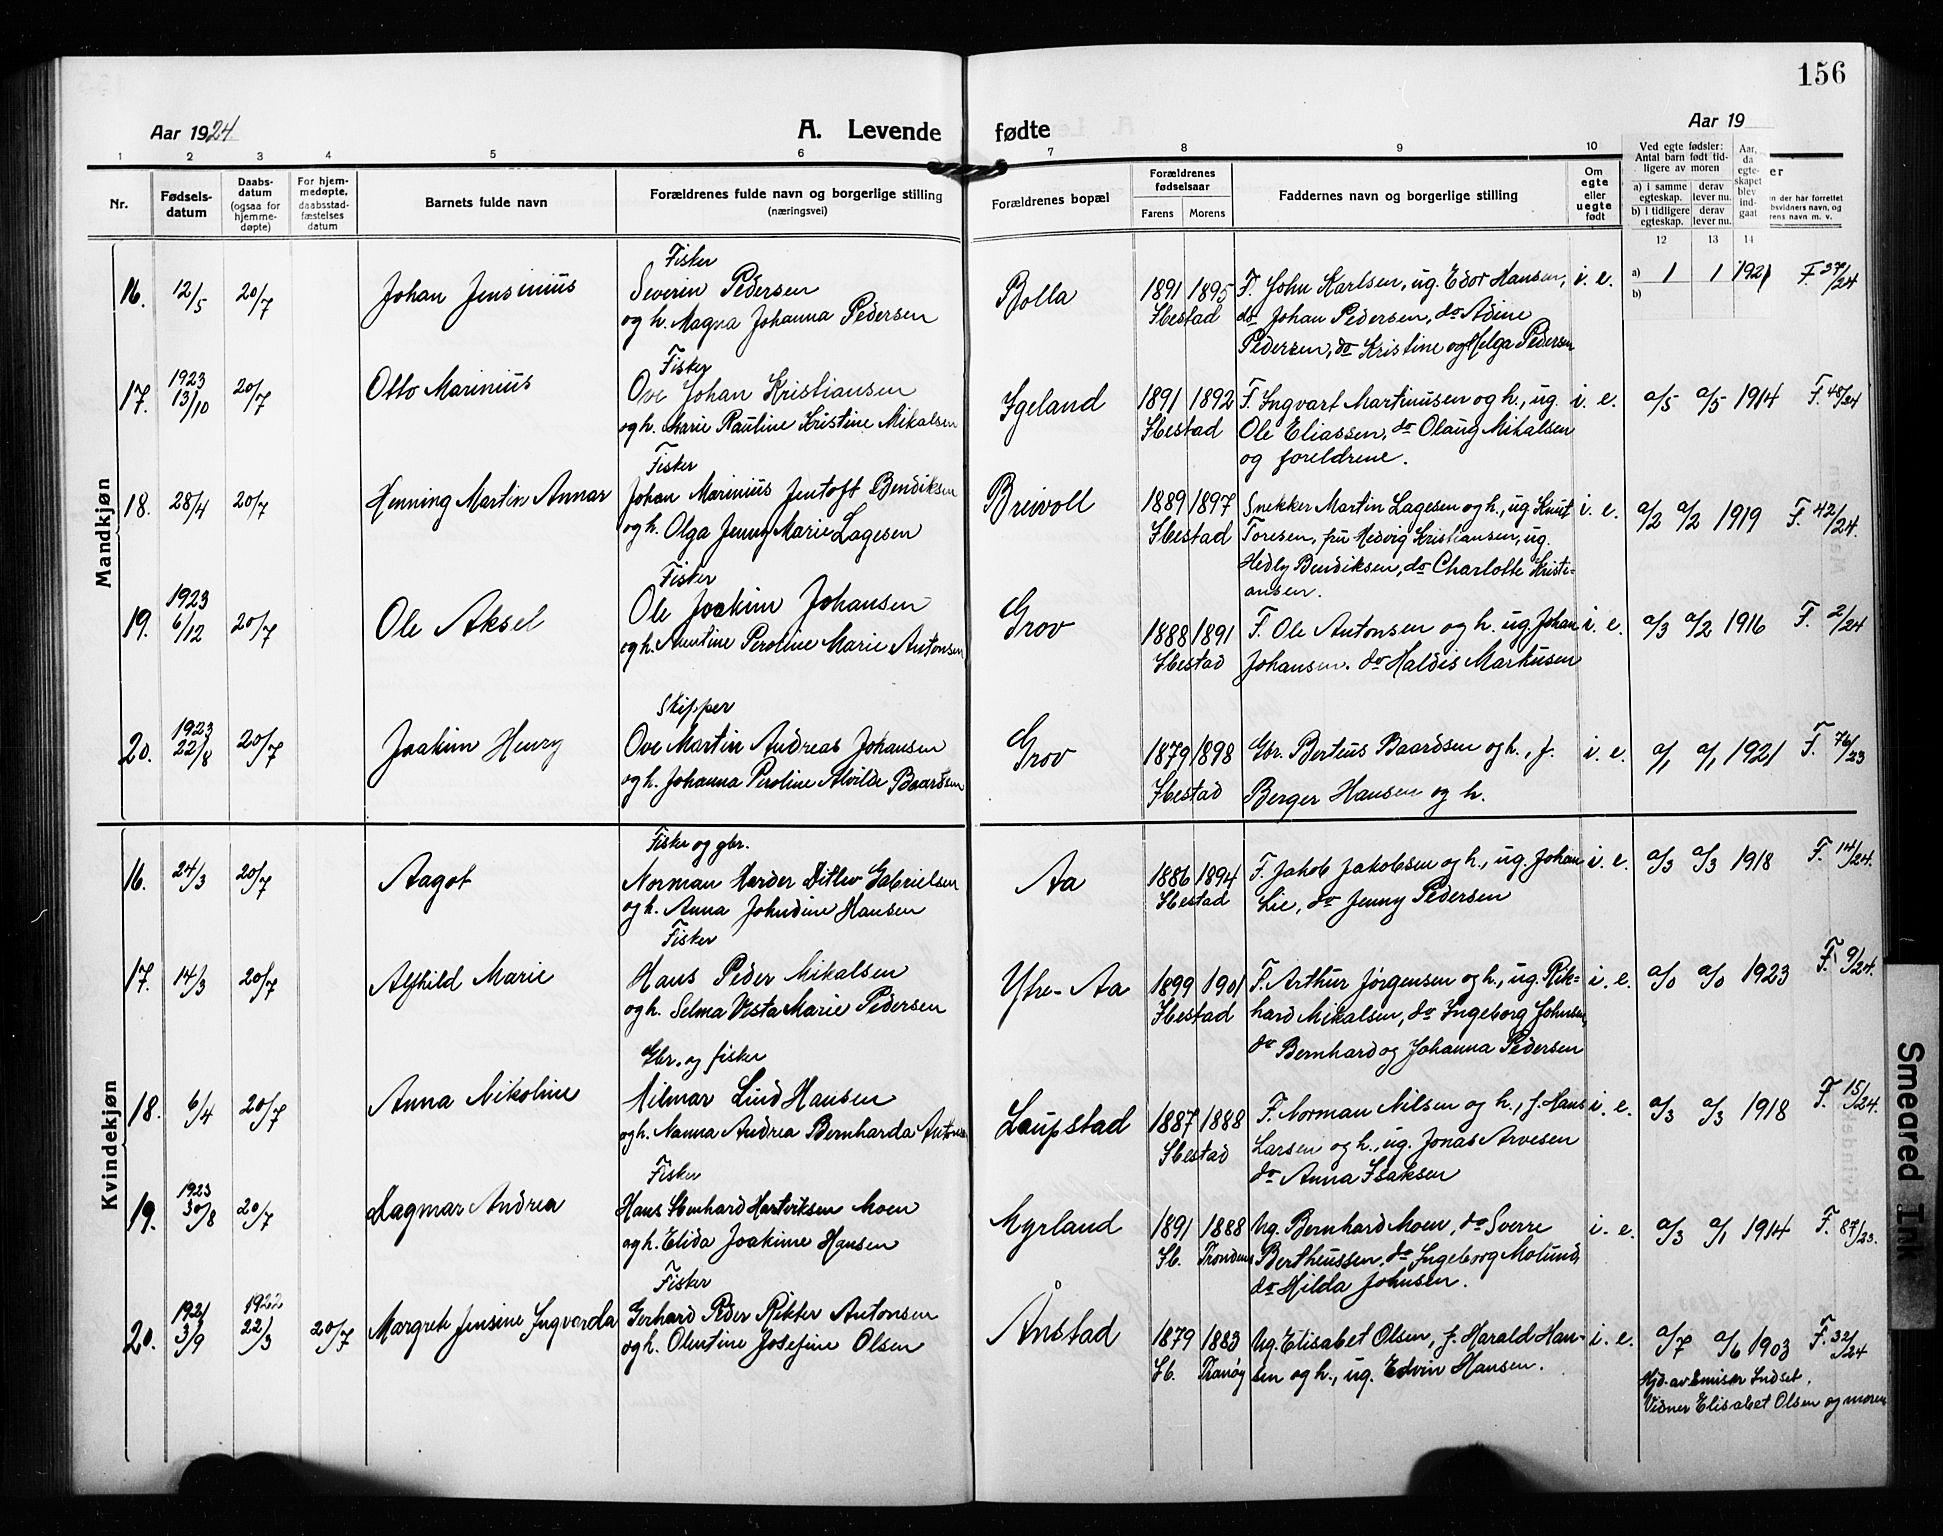 156
Aar 1924.
A. Levende fødte
Aar 19
1 2 3 4 5 6 7 8 9 10
Nr.
Fødsels-
datum
Daabs-
datum
(ogsaa for
hjemme-
døpte)
For hjem-
medøpte,
daabsstad-
fæstelses
datum
Barnets fulde navn
Forældrenes fulde navn og borgerlige stilling
(næringsvei)
Forældrenes bopæl
Forældrenes
fødselsaar
Farens Morens
Faddernes navn og borgerlige stilling
Om
egte
eller
uegte
født
Ved egte fødsler:
Antal barn født tid-
ligere av moren
a) i samme
egteskap.
derav
lever nu.
b) i tidligere
egteskap.
derav
lever nu.
Aar,
da
egte-
skapet
blev
ind-
gaat
12 13 14
er
n der har forrettet
bsvidners navn, og
rens navn m. v.
Mandkjøn
16. 12/5 20/7 Johan Jensinius
Fisker
Severin Pedersen
og h. Magna Johanna Pedersen
Rolla
1891 1895
Ibestad
F. John Karlsen, ug. Edor Hansen,
do Johan Pedersen, do Adine
Pedersen, do Kristine og Helga Pedersen
i. e.
a) 1 1 1921 F. 37/24
b)
17. 1923
13/10 20/7 Otto Marinius
Fisker
Ove Johan Kristiansen
og h. Marie Pauline Kristine Mikalsen
Igeland
1891 1892
Ibestad
F. Ingvart Martinusen og h., ug.
Ole Eliassen, do Olaug Mikalsen
og foreldrene.
i. e.
a/5 a/5 1914 F. 48/24
18. 28/4 20/7 Henning Martin Annar
Fisker
Johan Marinius Jentoft Bendiksen
og h. Olga Jenny Marie Lagesen
Breivoll
1889 1897
Ibestad
Snekker Martin Lagesen og h., ug. Knut
Toresen, fru Hedvig Kristiansen, ug.
Hedly Bendiksen, do Charlotte Kristi-
ansen.
i. e.
a/2 a/2 1919 F. 42/24.
19. 1923
6/12 20/7 Ole Aksel
Fisker
Ole Joakim Johansen
og h. Anntine Peroline Marie Antonsen
Grov
1888 1891
Ibestad
F. Ole Antonsen og h. ug. Johan
Johansen. do Haldis Markusen
i. e.
a/3 a/2 1916 F. 2/24
20. 1923
22/8 20/7 Joakim Henry
Skipper
Ove Martin Andreas Johansen
og h. Johanna Peroline Alvilde Baardsen
Grov
1879 1898
Ibestad
Gbr. Berteus Baardsen og h., f.
Berger Hansen og h.
i. e.
a/1 a/1 1921 F. 76/23
Kvindekjøn
16. 24/3 20/7 Aagot
Fisker og gbr.
Norman Harder Ditlev Gabrielsen
og h. Anna Johndine Hansen
Aa
1886 1894
Ibestad
F. Jakob Jakobsen og h., ug. Johan
Lie, do Jenny Pedersen
i. e.
a/3 a/3 1918 F. 14/24.
17. 14/3 20/7 Alfhild Marie
Fisker
Hans Peder Mikalsen
og h. Selma Vesta Marie Pedersen
Ytre-Aa
1899 1901
Ibestad
F. Arthur Jørgensen og h., ug. Rik-
hard Mikalsen, do Ingeborg Johnsen,
do Bernhard og Johanna Pedersen
i. e.
a/0 a/0 1923 F. 9/24.
18. 6/4 20/7 Anna Nikoline
Gbr. og fisker
Hilmar Lind Hansen
og h. Nanna Andrea Bernharda Antonsen
Laupstad
1887 1888
Ibestad
F. Norman Nilsen og h., f. Hans
Larsen og h., ug. Jonas Arvesen
do Anna Isaksen
i. e.
a/3 a/3 1918 F. 15/24.
19. 1923
30/8 20/7 Dagmar Andrea
Fisker
Hans Stenhard Hartviksen Moen
og h. Elida Joakime Hansen
Myrland
1891 1888
Ib. Trondenes
Ug. Bernhard Moen, do Sverre
Bertheussen, do Ingeborg Molund,
do Hilda Johnsen.
i. e.
a/3 a/1 1914 F. 87/23.
20. 1921
3/9 1922
22/3 20/7 Margrete Jensine Ingvarda
Fisker
Gerhard Peder Rikter Antonsen
og h. Oluntine Josefine Olsen
Ånstad
1879 1883
Ib. Tranøy
Ug. Elisabet Olsen, f. Harald Han-
sen og h., ug. Edvin Hansen.
i. e.
a/7 a/6 1903 F. 32/24
Hjd. av Emisær Indset.
Vidner Elisabet Olsen og moren
Smeared Ink